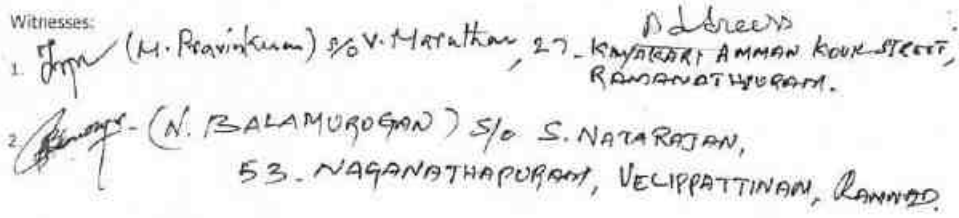 Witnesses:
Address
1. (M. Pravinkumar) S/o V. Maruthan, 27- KAYAKARI AMMAN KOVIL STREET,
RAMANATHAPURAM.
2. (N. BALAMUROGAN) S/o S. NATARAJAN,
53. NAGANATHAPURAM, VELIPPATTINAM, RAMNAD.